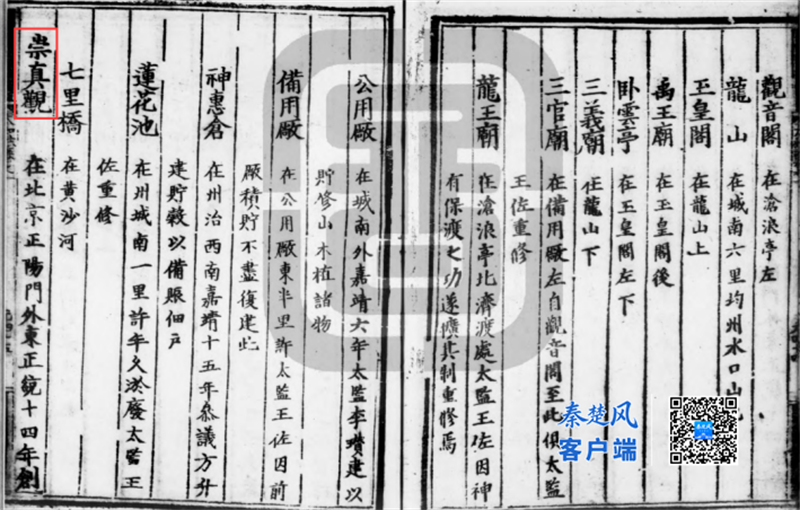 觀音閣 在滄浪亭左
龍山 在城南六里均州水口山
玉皇閣 在龍山上
禹王廟 在玉皇閣後
卧雲亭 在玉皇閣左下
三義廟 在龍山下
三官廟 在備用厰左自觀音閣至此俱太監
王佐重修
龍王廟 在滄浪亭北濟渡處太監王佐因神
有保渡之功遂擴其制重修焉
公用厰 在城南外嘉靖六年太監李瓚建以
貯修山木植諸物
備用厰 在公用厰東半里許太監王佐因前
厰積貯不盡復建此
神惠倉 在州治西南嘉靖十五年叅議方升
建貯穀以備賑佃戶
蓮花池 在州城南一里許年久淤廢太監王
佐重修
七里橋 在黄沙河
崇真觀 在北京正陽門外東正統十四年創
秦楚风
客户端